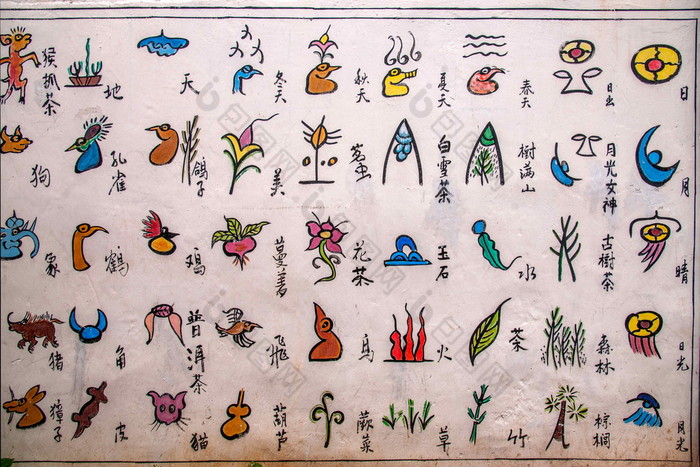 日
日出
春天
夏天
秋天
冬天
天
地
猴抓茶
月
月光女神
樹满山
白雪茶
茗虫
美
鸽子
孔雀
狗
晴
古樹茶
水
玉石
花茶
蔓菁
鸡
鹤
象
日光
森林
茶
火
鸟
飛
普洱茶
角
猪
月光
棕榈
竹
草
蕨菜
葫芦
猫
皮
獐子